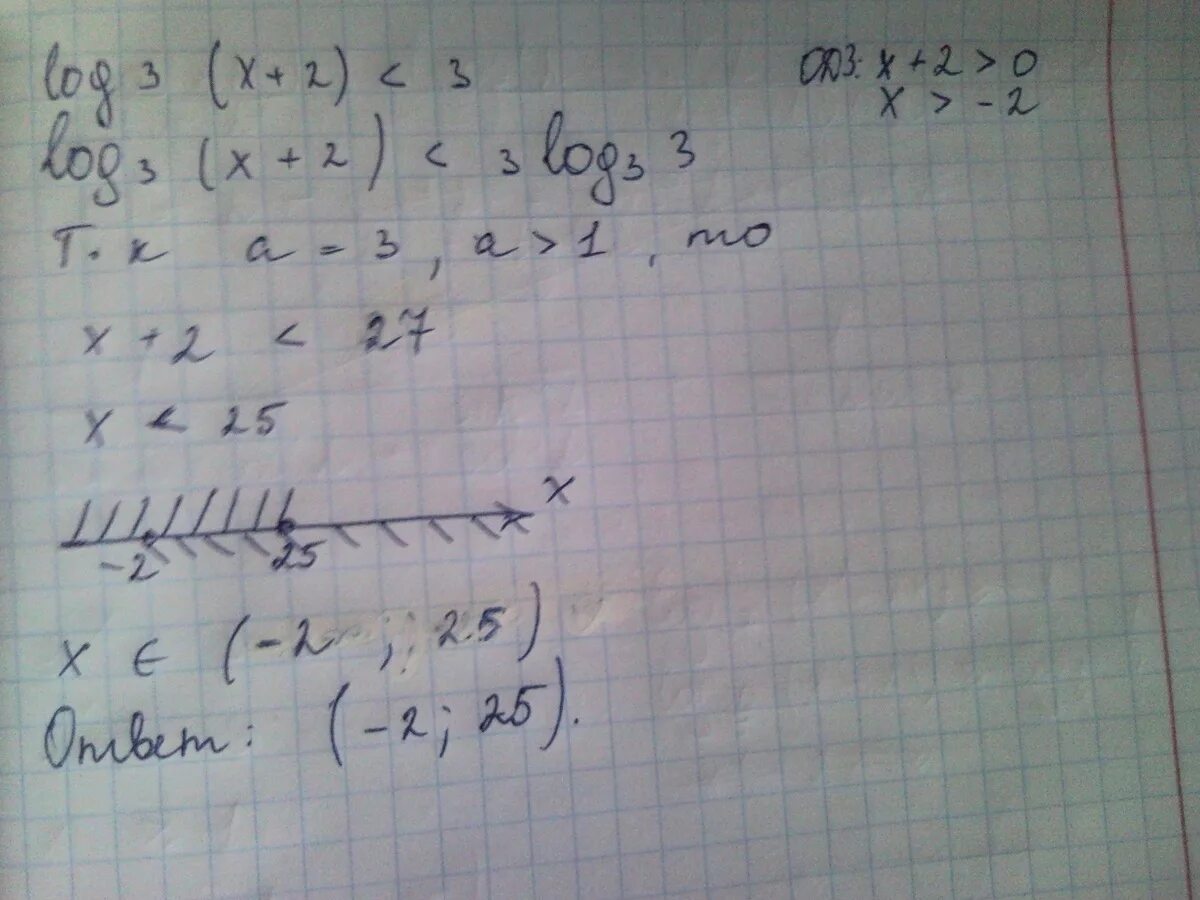 log 3 (x+2) < 3
ОДЗ: x+2 > 0
x > -2
log₃ (x+2) < 3 log₃ 3
Т.к a = 3, a > 1, то
x + 2 < 27
x < 25
x
-2 25
x ∈ (-2 ; 25)
Ответ: (-2; 25).